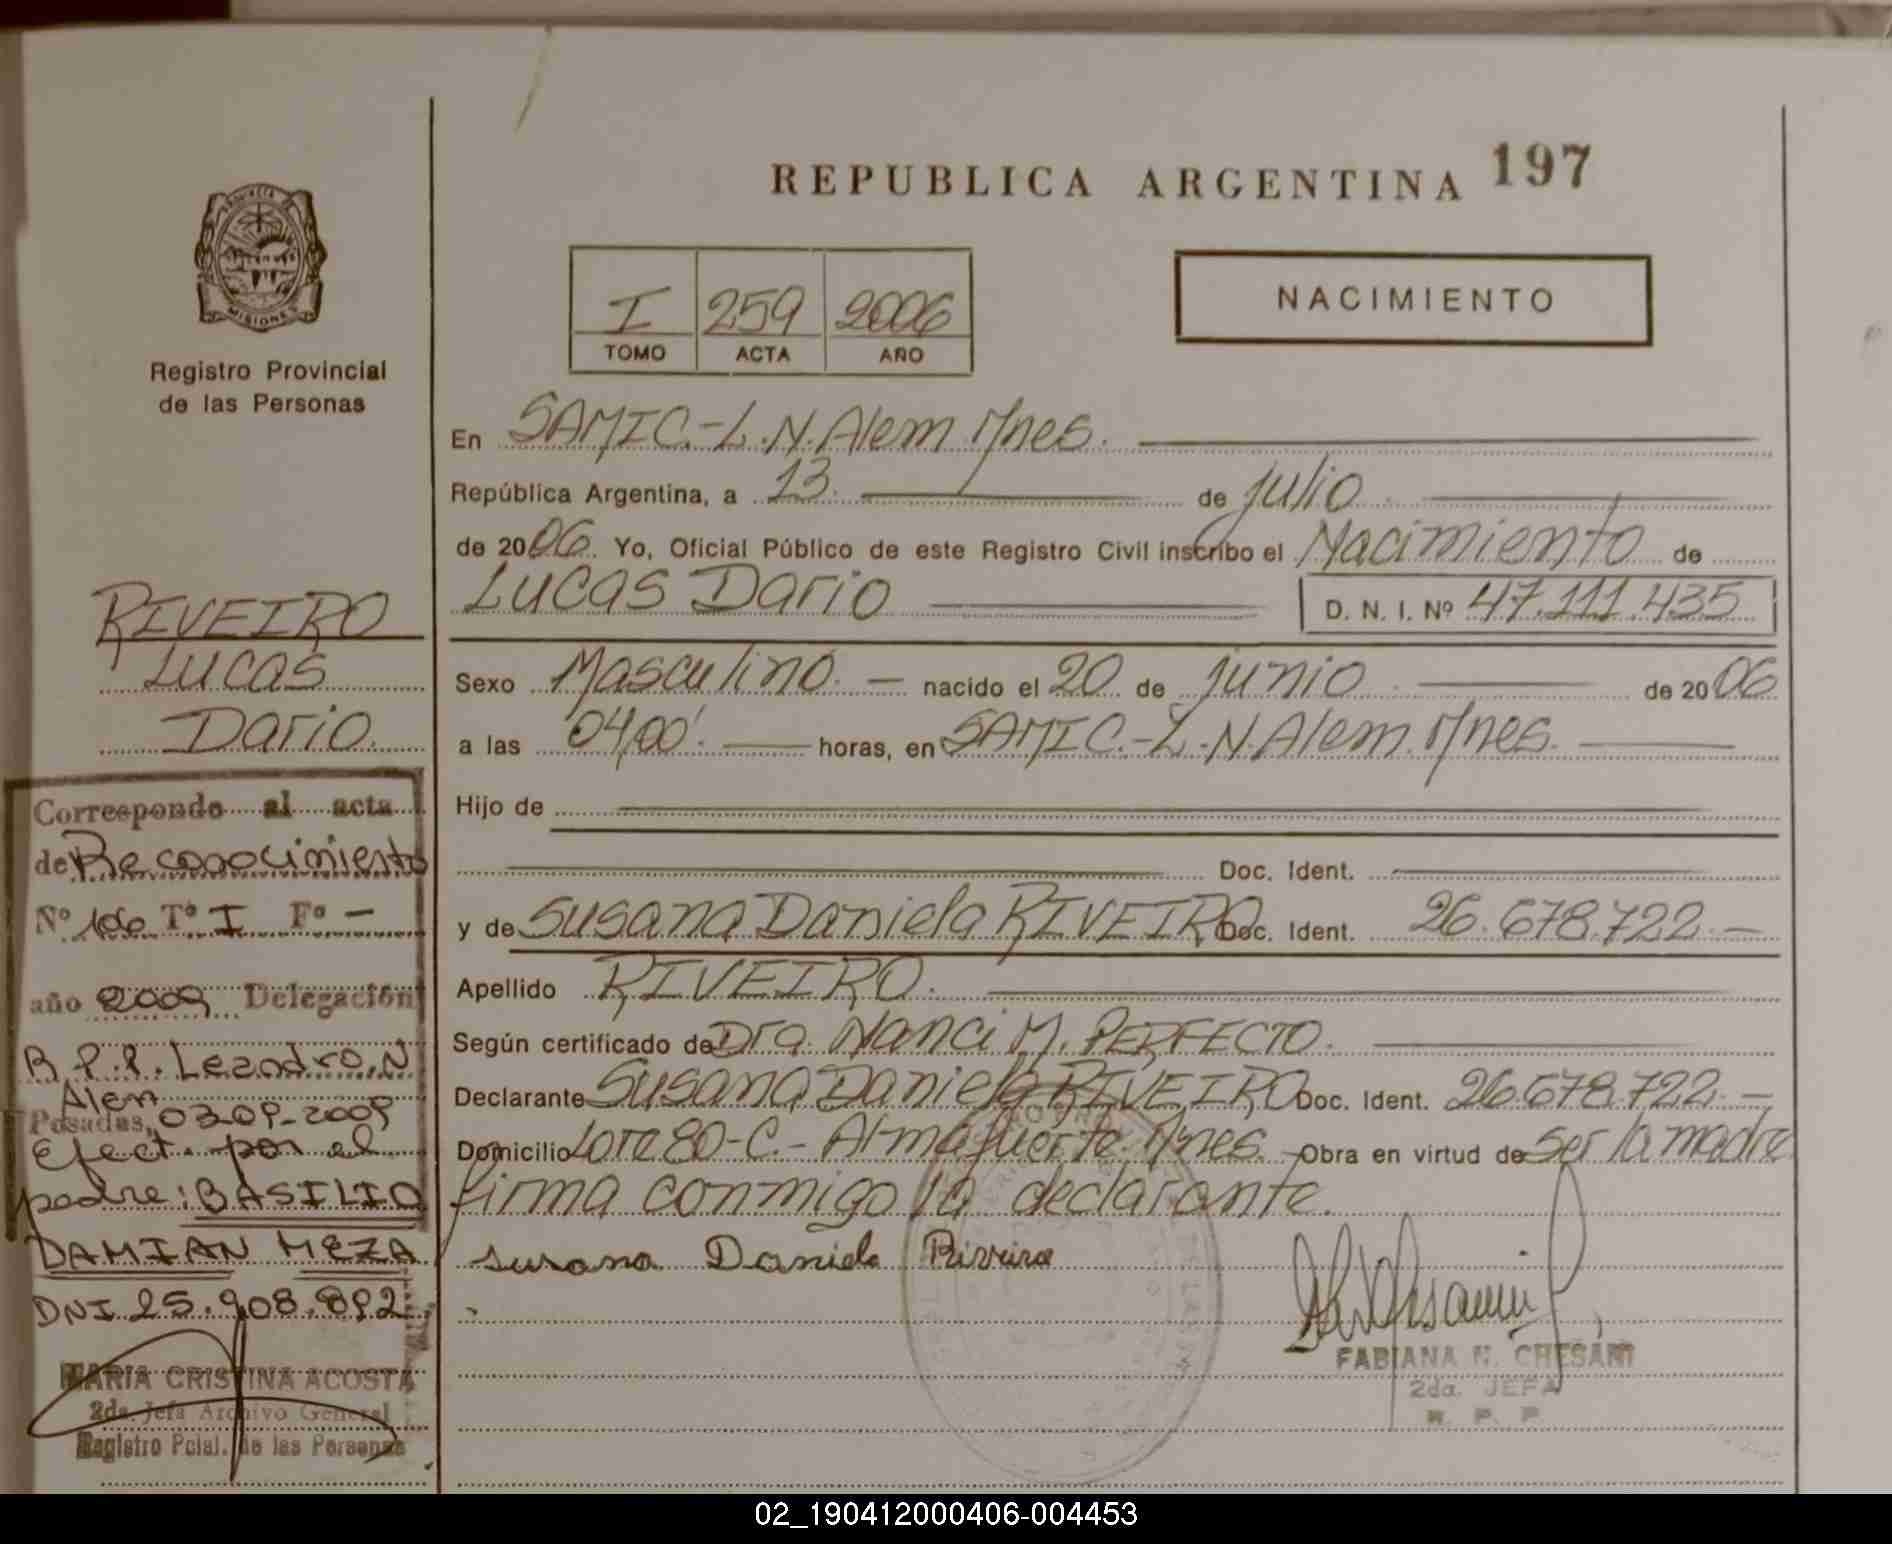 REPUBLICA ARGENTINA 197
PROVINCIA DE
MISIONES
Registro Provincial
de las Personas
I 259 2006
TOMO ACTA AÑO
NACIMIENTO
En SAMIC.-L.N.Alem Mnes.
República Argentina, a 13. de julio
de 2006. Yo, Oficial Público de este Registro Civil inscribo el Nacimiento de
LUCAS Dario D. N. I. Nº 47.111.435
Sexo Masculino. — nacido el 20 de junio de 2006
a las 04,00'. horas, en SAMIC.-L.N.Alem.Mnes.
Hijo de
Doc. Ident.
y de Susana Daniela RIVEIRO Doc. Ident. 26.678.722.—
Apellido RIVEIRO.
Según certificado de Dra. Nanci M. PERFECTO.
Declarante Susana Daniela RIVEIRO Doc. Ident. 26.678.722.—
Domicilio Lote 80-C.- Almafuerte. Mnes. Obra en virtud de ser la madre
firma conmigo la declarante.
Susana Daniela Riveiro
FABIANA N. CHESANI
2da. JEFA
R. P. P.
RIVEIRO
LUCAS
Dario.
Corresponde al acta
de Reconocimiento
Nº 106 Tº I Fº —
año 2009 Delegación
R.P.P. Leandro.N
Alem
Posadas, 03.09-2009
Efect. por el
padre: BASILIO
DAMIAN MEZA
DNI 25.908.892
MARIA CRISTINA ACOSTA
2da. Jefa Archivo General
Registro Pcial. de las Personas
02_190412000406-004453